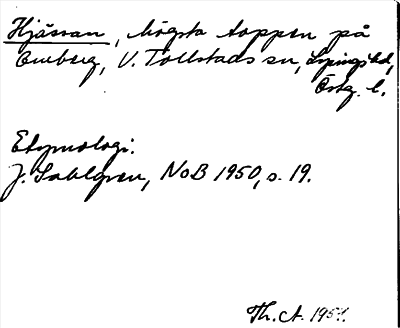 Hjässan, högsta toppen på
Omberg, V. Tollstads sn, Lysings hd,
Östg. l.
Etymologi.
J. Sahlgren, NoB 1950, s. 19.
Th. A. 1951.